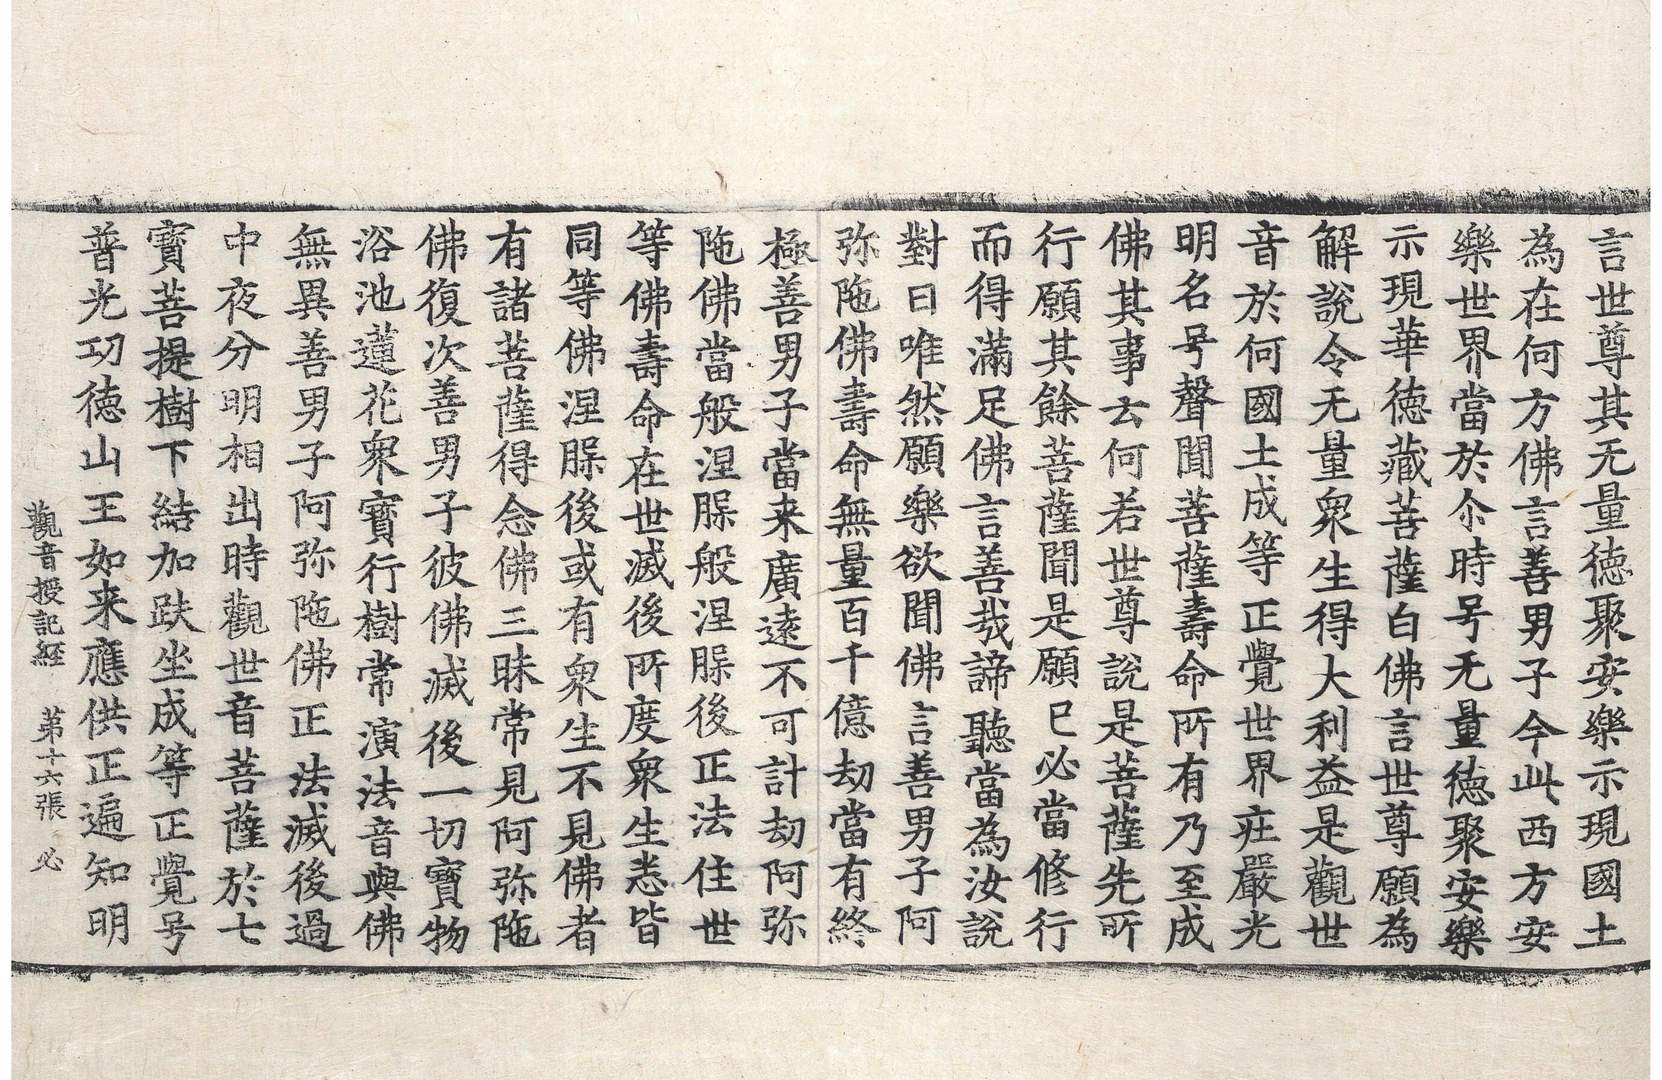 言世尊其无量德聚安樂示現國土
為在何方佛言善男子今此西方安
樂世界當於尒時号无量德聚安樂
示現華德藏菩薩白佛言世尊願為
解說令无量衆生得大利益是觀世
音於何國土成等正覺世界㽵嚴光
明名号聲聞菩薩壽命所有乃至成
佛其事云何若世尊說是菩薩先所
行願其餘菩薩聞是願已必當修行
而得滿足佛言善哉諦聽當為汝說
對曰唯然願樂欲聞佛言善男子阿
弥陁佛壽命無量百千億劫當有終
極善男子當来廣遠不可計劫阿弥
陁佛當般涅膟般涅膟後正法住世
等佛壽命在世滅後所度衆生悉皆
同等佛涅膟後或有衆生不見佛者
有諸菩薩得念佛三昧常見阿弥陁
佛復次善男子彼佛滅後一切寶物
浴池蓮花衆寶行樹常演法音與佛
無異善男子阿弥陁佛正法滅後過
中夜分明相出時觀世音菩薩於七
寶菩提樹下結加趺坐成等正覺号
普光功德山王如来應供正遍知明
觀音授記經 第十六張 必